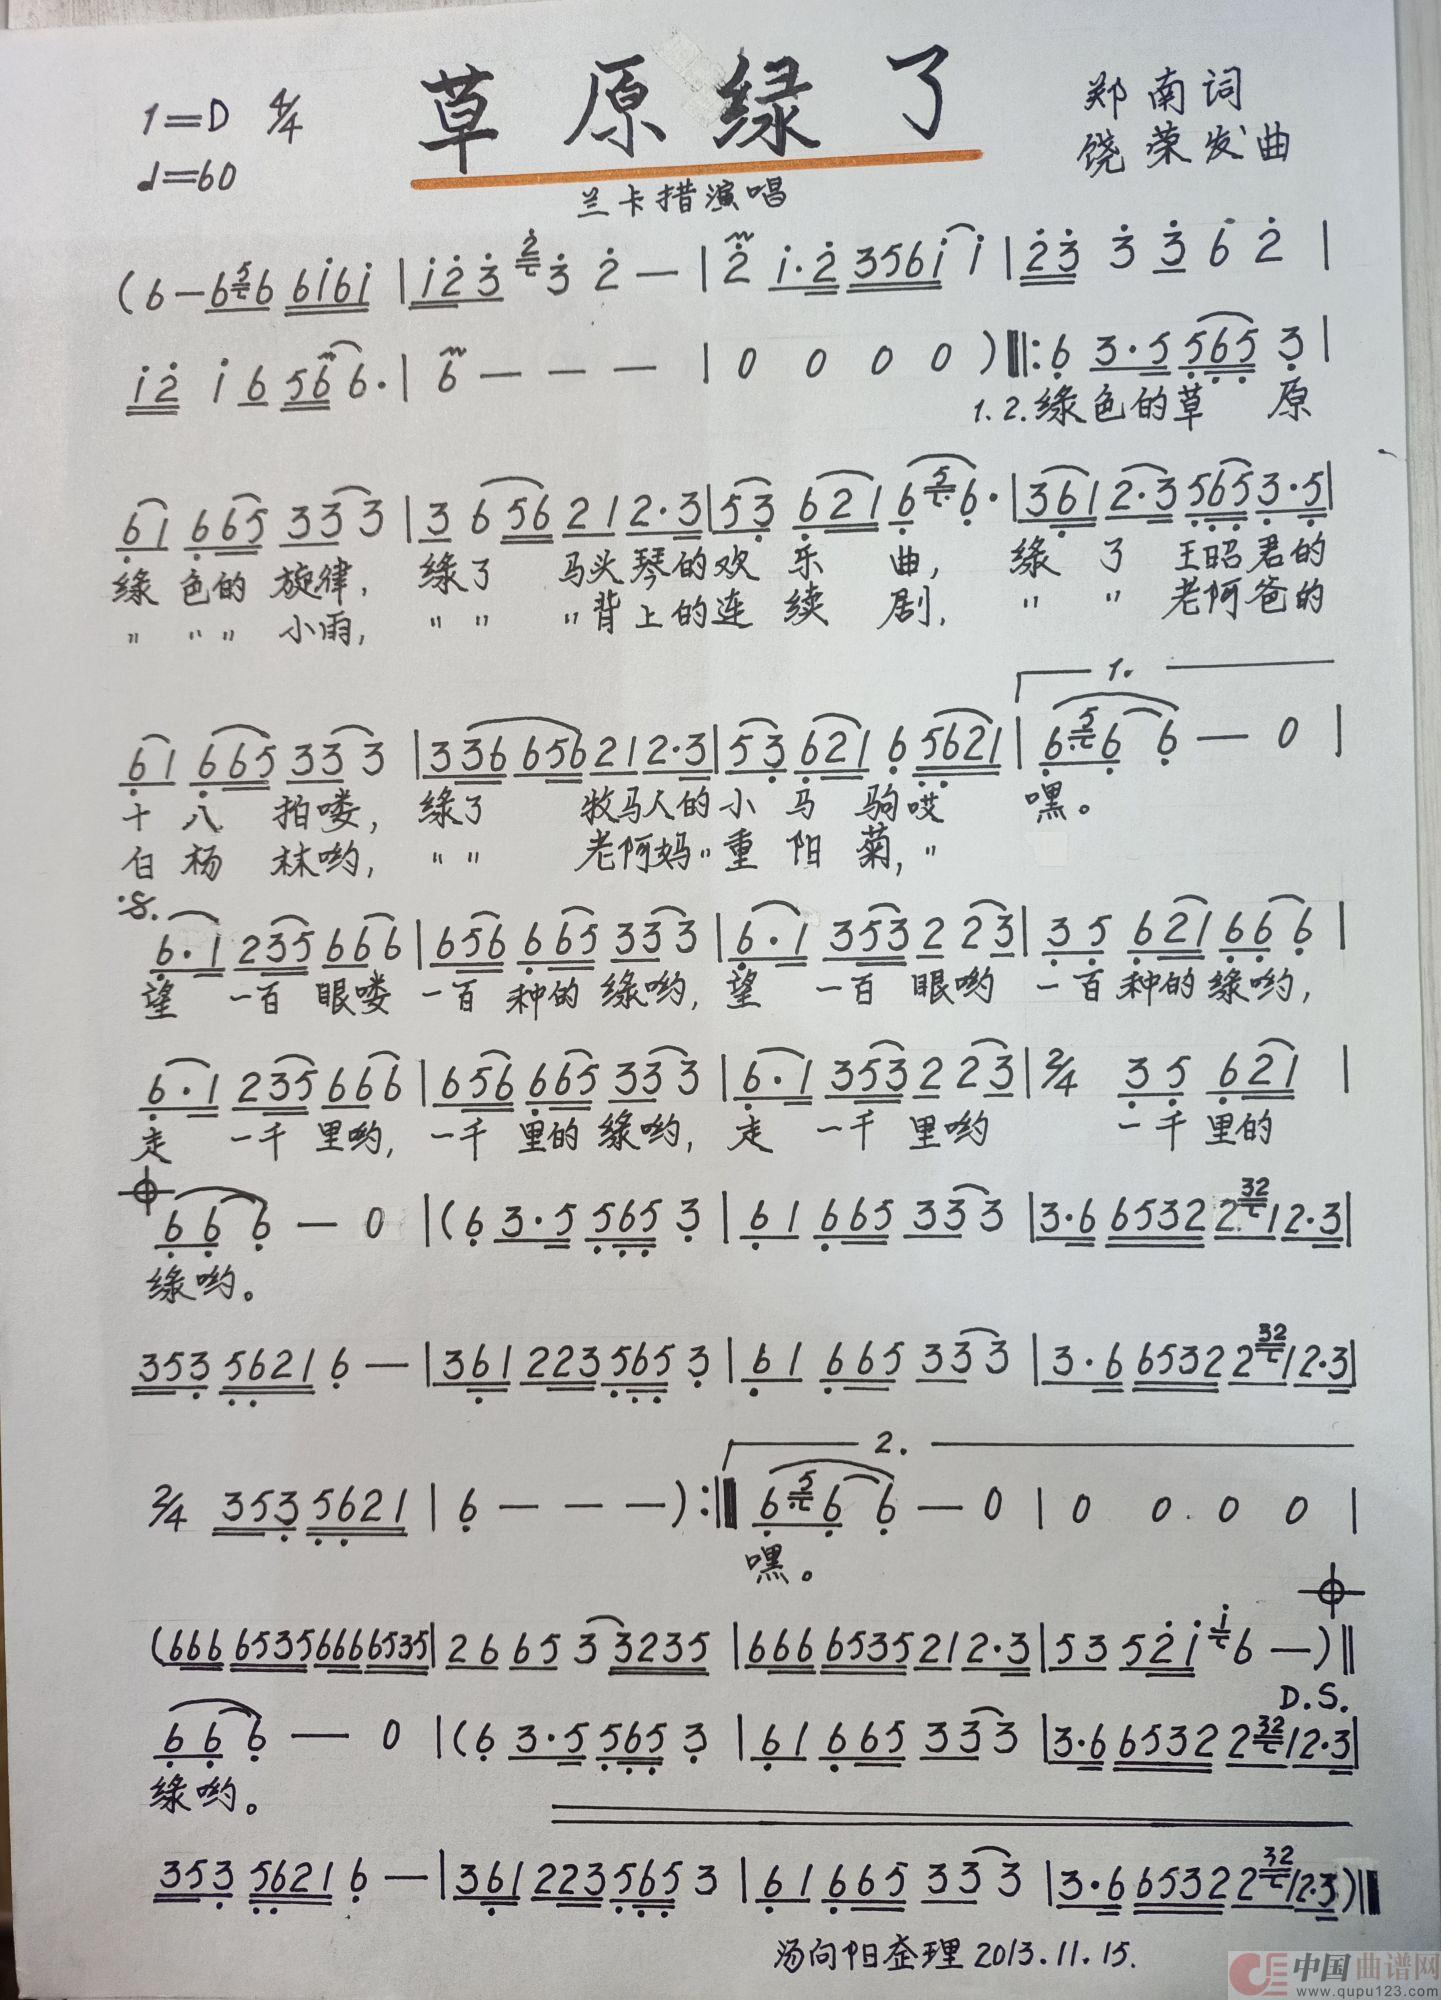 草原绿了
1=D 4/4
♩=60
郑南词
饶荣发曲
兰卡措演唱
(6 — 6 5 6 6i6i | i2 3 2 3 2 — | 2 i·2 356i i | 23 3 3 6 2 |
i2 i 6 56 6· | 6 — — — | 0 0 0 0 ) ‖: 6 3·5 565 3 |
1.2.绿色的草 原
61 665 33 3 | 3 6 56 21 2·3 | 53 621 6 5 6· | 361 2·3 565 3·5 |
绿 色的 旋律, 绿了 马头琴的欢 乐 曲, 绿 了 王昭君的
〃 〃〃 小雨, 〃 〃 〃背上的连 续 剧, 〃 〃 老阿爸的
1.
61 665 33 3 | 336 656 21 2·3 | 53 621 6 5621 | 6 5 6 6 — 0 |
十 八 拍喽, 绿了 牧马人的小 马 驹哎 嘿。
白 杨 林哟, 〃 〃 老阿妈〃重 阳 菊, 〃
:S.
6·1 235 666 | 656 665 33 3 | 6·1 353 2 23 | 3 5 621 66 6 |
望 一百 眼喽 一百 种的 绿哟, 望 一百 眼哟 一百种的绿哟,
6·1 235 666 | 656 665 33 3 | 6·1 353 2 23 | 2/4 3 5 621 |
走 一千 里哟, 一千 里的 绿哟, 走 一千 里哟 一千 里的
6 6 6 — 0 | (6 3·5 565 3 | 61 665 33 3 | 3·6 6532 2 32 1 2·3 |
绿哟。
353 5621 6 — | 361 223 565 3 | 61 665 33 3 | 3·6 6532 2 32 1 2·3 |
2.
2/4 353 5621 | 6 — — — ) :‖ 6 5 6 6 — 0 | 0 0 0 0 |
嘿。
(666 6535 666 6535 | 26 65 3 3235 | 666 6535 21 2·3 | 53 52i i 6 — ) ‖
D.S.
6 6 6 — 0 | (6 3·5 565 3 | 61 665 33 3 | 3·6 6532 2 32 1 2·3 |
绿哟。
353 5621 6 — | 361 223 565 3 | 61 665 33 3 | 3·6 6532 2 32 1 2·3 ) ‖
汤向阳整理 2013.11.15.
中国曲谱网
www.qupu123.com